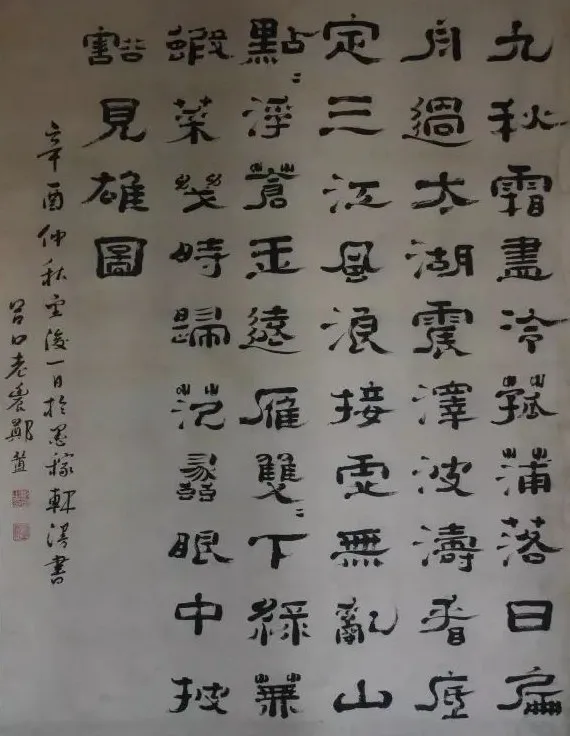 九秋霜盡冷菰蒲落日扁
舟過太湖震澤波濤看底
定三江風浪接虛無亂山
點〻浮蒼玉遠雁雙〻下綠蕪
蝦菜幾時歸范蠡眼中披
豁見雄圖
辛酉仲秋望後一日於墨稼軒書
呂口老農鄭